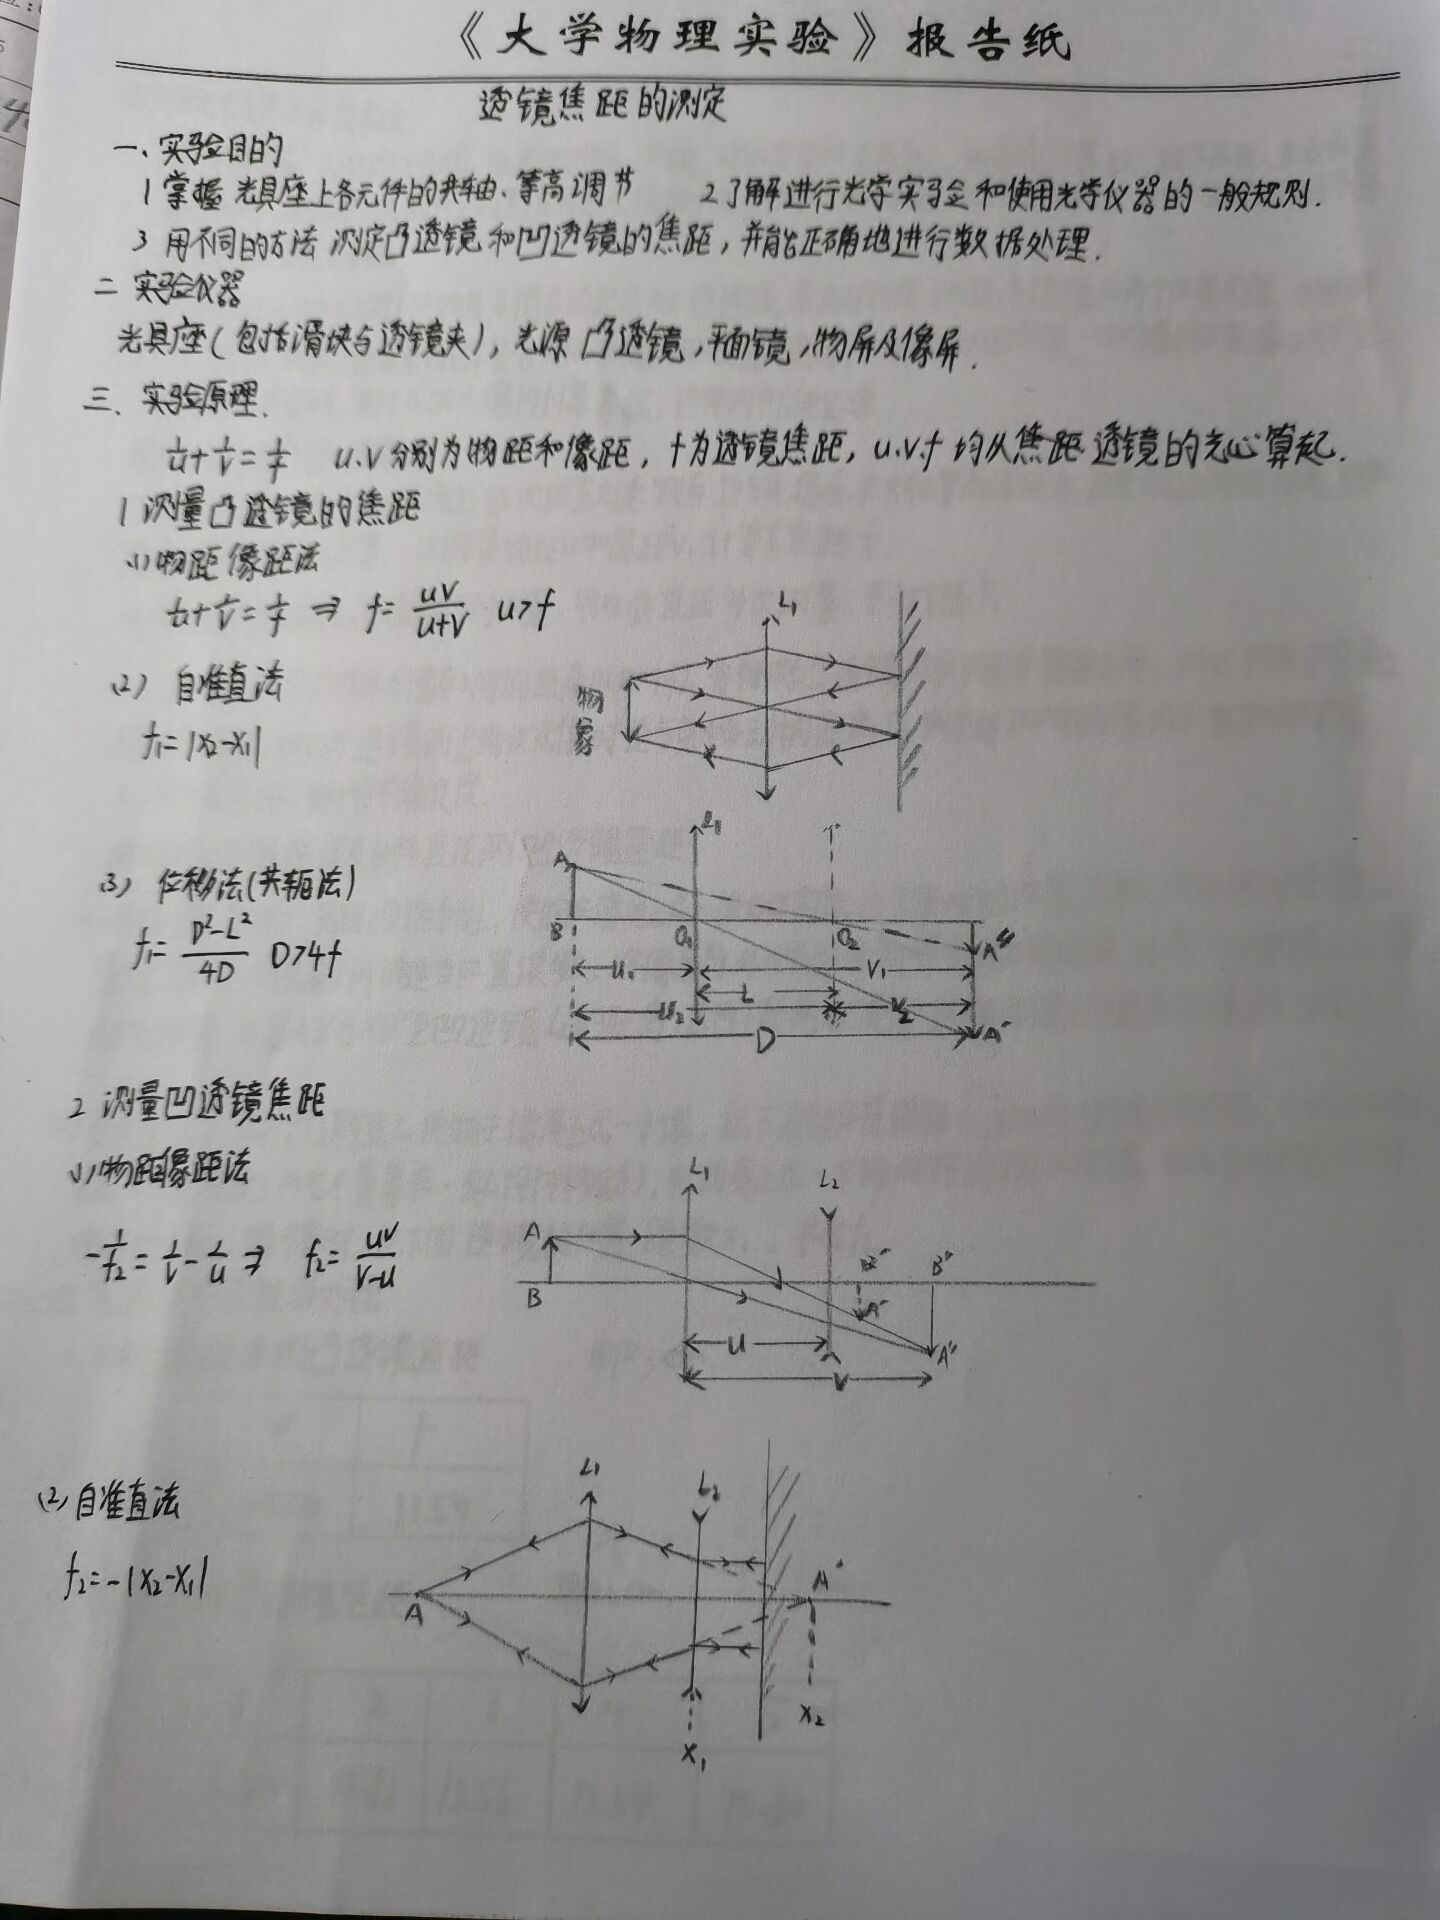 《大学物理实验》报告纸
透镜焦距的测定
一、实验目的
1 掌握光具座上各元件的共轴、等高调节 2 了解进行光学实验和使用光学仪器的一般规则.
3 用不同的方法测定凸透镜和凹透镜的焦距,并能正确地进行数据处理.
二 实验仪器
光具座(包括滑块与透镜夹),光源 凸透镜,平面镜,物屏及像屏.
三、实验原理.
1/u+1/v=1/f u.v分别为物距和像距,f为透镜焦距,u.v.f均从焦距透镜的光心算起.
1 测量凸透镜的焦距
(1)物距像距法
1/u+1/v=1/f ⇒ f=uv/(u+v) u>f
L1
(2) 自准直法
物
象
f1=|x2-x1|
L1
A
(3) 位移法(共轭法)
f1=(D²-L²)/4D D>4f
B O1 O2 A''
u1 V1
L
u2 V2
D A'
2 测量凹透镜焦距
(1)物距像距法
L1 L2
-1/f2=1/v-1/u ⇒ f2=uv/(v-u)
A B' B''
B A'
u A''
v
(2)自准直法
L1 L2
f2=-|x2-x1|
A A'
x2
x1